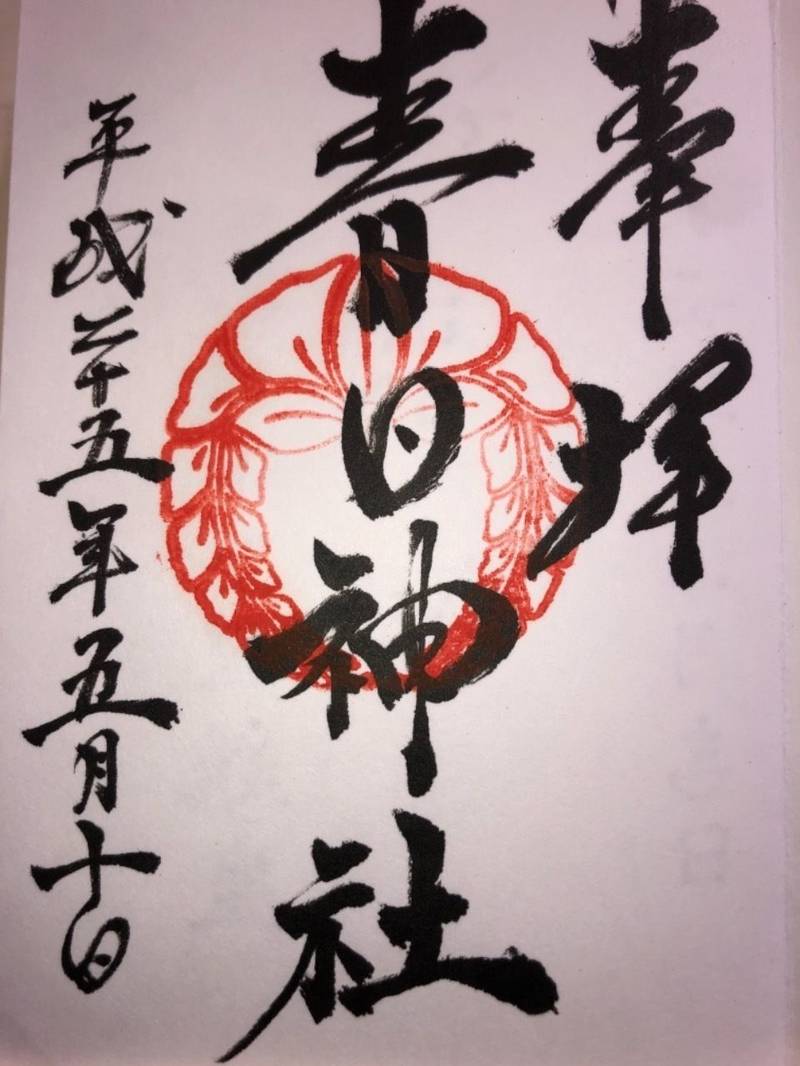 奉拝
春日神社
平成二十五年五月十日